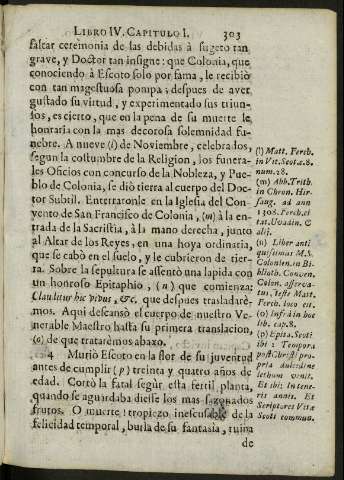 LIBRO IV. CAPITULO I. 303
faltar ceremonia de las debidas à sugeto tan
grave, y Doctor tan insigne: que Colonia, que
conociendo à Escoto solo por fama, le recibiò
con tan magestuosa pompa; despues de aver
gustado su virtud, y experimentado sus triun-
fos, es cierto, que en la pena de su muerte le
honraria con la mas decorosa solemnidad fu-
nebre. A nueve (l) de Noviembre, celebrados,
segun la costumbre de la Religion, los funera-
les Oficios con concurso de la Nobleza, y Pue-
blo de Colonia, se diò tierra al cuerpo del Doc-
tor Subtil. Enterraronle en la Iglesia del Con-
vento de San Francisco de Colonia, (m) à la en-
trada de la Sacristia, à la mano derecha, junto
al Altar de los Reyes, en una hoya ordinatia,
que se cabò en el suelo, y le cubrieron de tier-
ra. Sobre la sepultura se assentò una lapida con
un honroso Epitaphio, (n) que comienza:
Clauditur hic vivus, &c. que despues trasladarè-
mos. Aqui descansò el cuerpo de nuestro Ve-
nerable Maestro hasta su primera translacion,
(o) de que tratarèmos abaxo.
4 Muriò Escoto en la flor de su juventud
antes de cumplir (p) treinta y quatro años de
edad. Cortò la fatal segur esta fertil planta,
quando se aguardaba diesse los mas sazonados
frutos. O muerte! tropiezo inescusable de la
felicidad temporal, burla de su fantasia, ruina
de
(l) Matt. Ferch.
in Vit. Scoti c. 8.
num. 28.
(m) Abb. Trith.
in Chron. Hir-
saug. ad ann
1308. Ferch. ci-
tat. Uvadin. &
alij.
(n) Liber anti
quissimus M. S.
Colonien. in Bi-
blioth. Conven.
Colon. asserva-
tus, teste Matt.
Ferch. loco cit.
(o) Infrà in hoc
lib. cap. 8.
(p) Epita. Scoti
ibi: Tempora
post Christi pro-
pria
lethum venit.
Et ibi: In tene-
ris annis. Et
Scriptores Vitæ
Scoti commun.